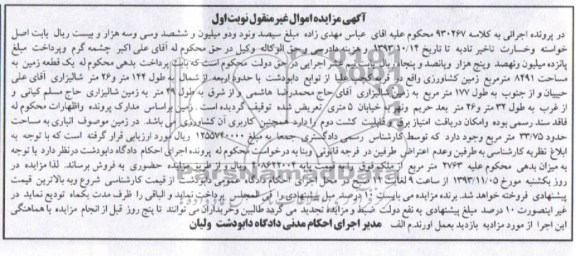 آگهی مزایده اموال غیرمنقول نوبت اول
در پرونده اجرائی به کلاسه ۹۳۰۲۶۷ محکوم علیه آقای عباس مهدی زاده مبلغ سیصد ونود ودو میلیون و ششصد وسی وسه هزار و بیست ریال بابت اصل
خواسته وخسارت تاخیر تادیه تا تاریخ ۹۳/۱۰/۱۴ و هزینه دادرسی و حق الوکاله وکیل در حق محکوم له آقای علی اکبر چشمه گرم وپرداخت مبلغ
پانزده میلیون ونهصد وپنج هزار وپانصد و پنجاه اجرایی در حق دولت محکوم است که بابت پرداخت بدهی محکوم له یک قطعه زمین به
مساحت ۸۴۹۱ مترمربع زمین کشاورزی واقع در قریه کهنه علیا از توابع دابودشت با حدود اربعه از شمال به طول ۱۲۴ متر و ۲۶ متر شالیزاری آقای علی
حبیبیان و از جنوب به طول ۱۷۷ متر به زمین شالیزاری آقای حاج محمدرضا هاشمی و از شرق به طول ۴۹ متر به زمین شالیزاری حاج مسلم کیانی و
از غرب به طول ۳۴ متر و ۲۶ متر بعد حریم ونهر وخیابان ۵ متری تعریض شده توقیف گردیده است. زمین براساس مدارک پرونده واظهارات محکوم له
فاقد سند رسمی بوده وامکان دریافت امتیاز برق وقابلیت کشت دوم را دارد همچنین کاربری آن کشاورزی می باشد. در زمین موصوف انباری به مساحت
حدود ۳۳/۷۵ متر مربع وجود دارد که توسط کارشناس رسمی دادگستری جمعا به مبلغ ۱۲۵۵۷۴۰۰۰۰ ریال مورد ارزیابی قرار گرفته است که با توجه به
ابلاغ نظریه کارشناسی به طرفین وعدم اعتراض طرفین دور فرجه قانونی وبنا به درخواست محکوم له پرونده اجرای احکام دادگاه دابودشت درنظر دارد با توجه
به میزان بدهی محکوم علیه ۲۷۶۳ متر مربع از ملک فوق را به قیمت ۴۰۸۶۲۲۰۰۴ ریال از طریق مزایده حضوری به فروش برساند. لذا مزایده در
روز یکشنبه مورخ ۱۳۹۳/۱۱/۰۵ از ساعت ۹ لغایت ۱۰ صبح در محل اجرای احکام دادگاه عمومی دابودشت از قیمت کارشناسی شروع وبه بالاترین قیمت
پیشنهادی فروخته خواهد شد. برنده مزایده می بایست ۱۰ درصد مبلغ پیشنهادی را فی المجلس پرداخت نماید و الباقی را ظرف مدت یکماه تودیع نماید در
غیر اینصورت ۱۰ درصد مبلغ پیشنهادی به نفع دولت ضبط و مزایده تجدید می گردد طالبین وخریداران می توانند تا پنج روز قبل از انجام مزایده با هماهنگی
این اجرا از مورد مزایده بازدید بعمل آورند.م الف مدیر اجرای احکام مدنی دادگاه دابودشت ولیان